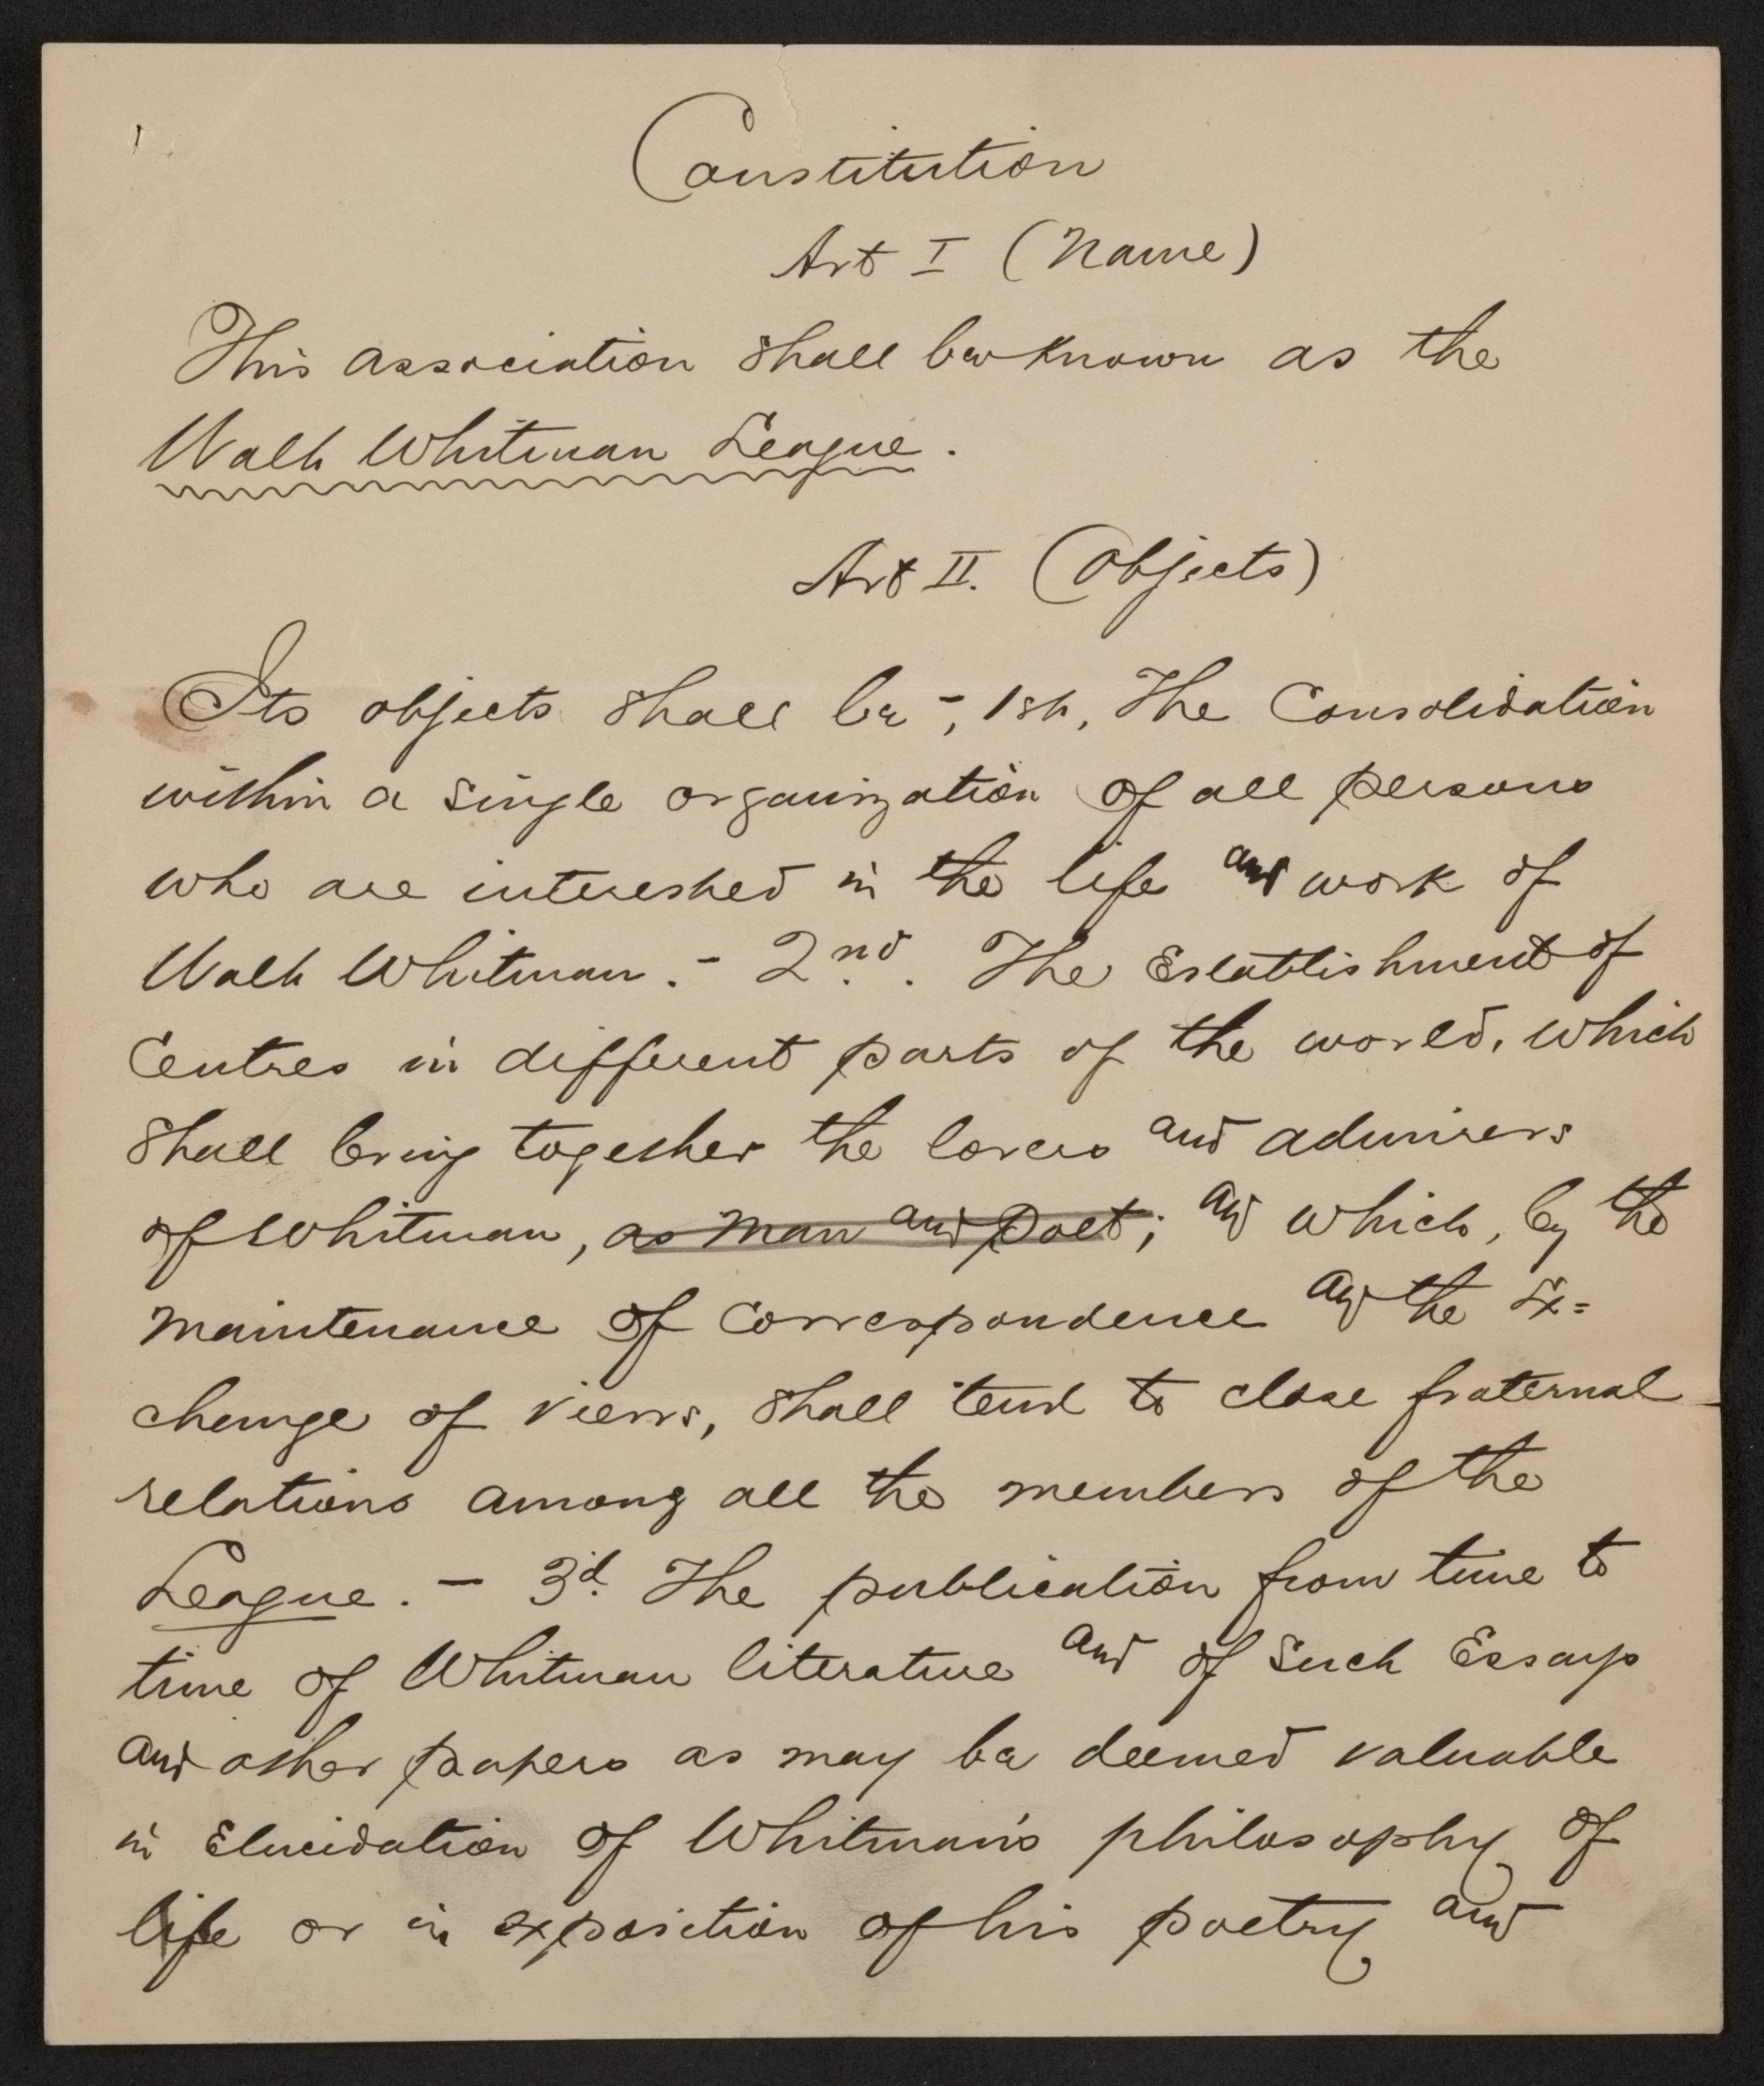 1
Constitution
Art I (Name)
This association shall be known as the
Walt Whitman League.
Art II. (Objects)
Its objects shall be -, 1st, The Consolidation
within a single organization of all persons
who are interested in the life and work of
Walt Whitman. - 2nd. The Establishment of
Centres in different parts of the world, which
shall bring together the lovers and admirers
of Whitman, as man and poet; and which, by the
maintenance of correspondence and the Ex=
change of views, shall tend to close fraternal
relations among all the members of the
League. - 3d. The publication from time to
time of Whitman literature and of such Essays
and other papers as may be deemed valuable
in Elucidation of Whitman's philosophy of
life or in exposition of his poetry and